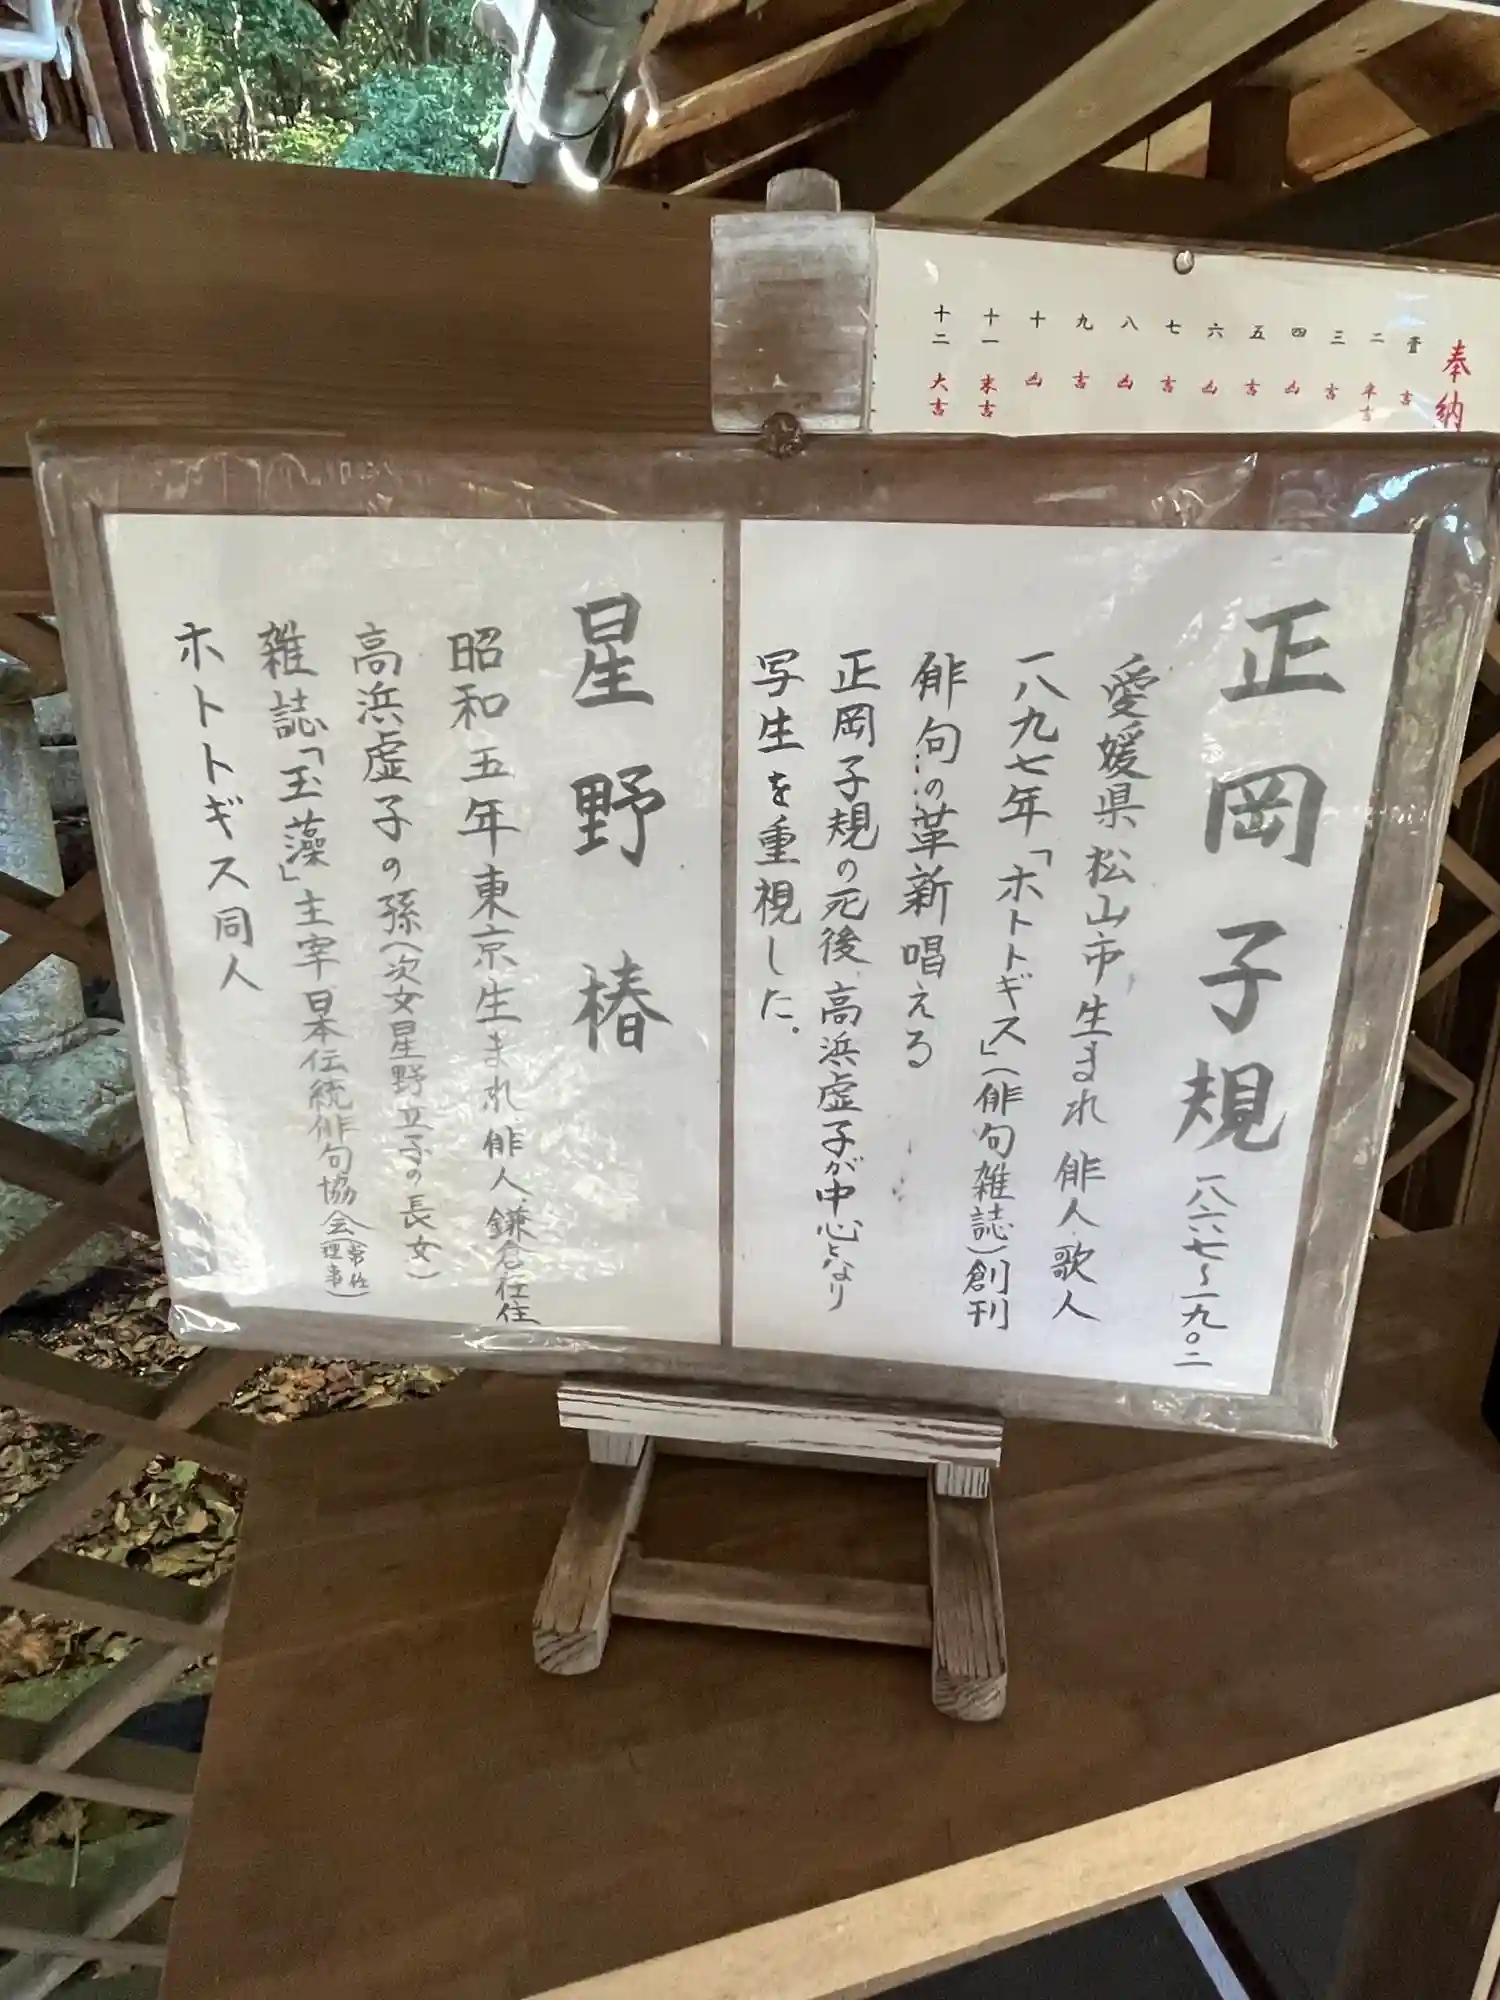 奉納
壹 吉
二 末吉
三 吉
四 凶
五 吉
六 凶
七 吉
八 凶
九 吉
十 凶
十一 末吉
十二 大吉
正岡子規 一八六七～一九〇二
愛媛県松山市生まれ 俳人・歌人
一八九七年「ホトトギス」(俳句雑誌)創刊
俳句の革新唱える
正岡子規の死後、高浜虚子が中心となり
写生を重視した。
星野 椿
昭和五年東京生まれ 俳人 鎌倉在住
高浜虚子の孫(次女星野立子の長女)
雑誌「玉藻」主宰 日本伝統俳句協会(常任理事)
ホトトギス同人